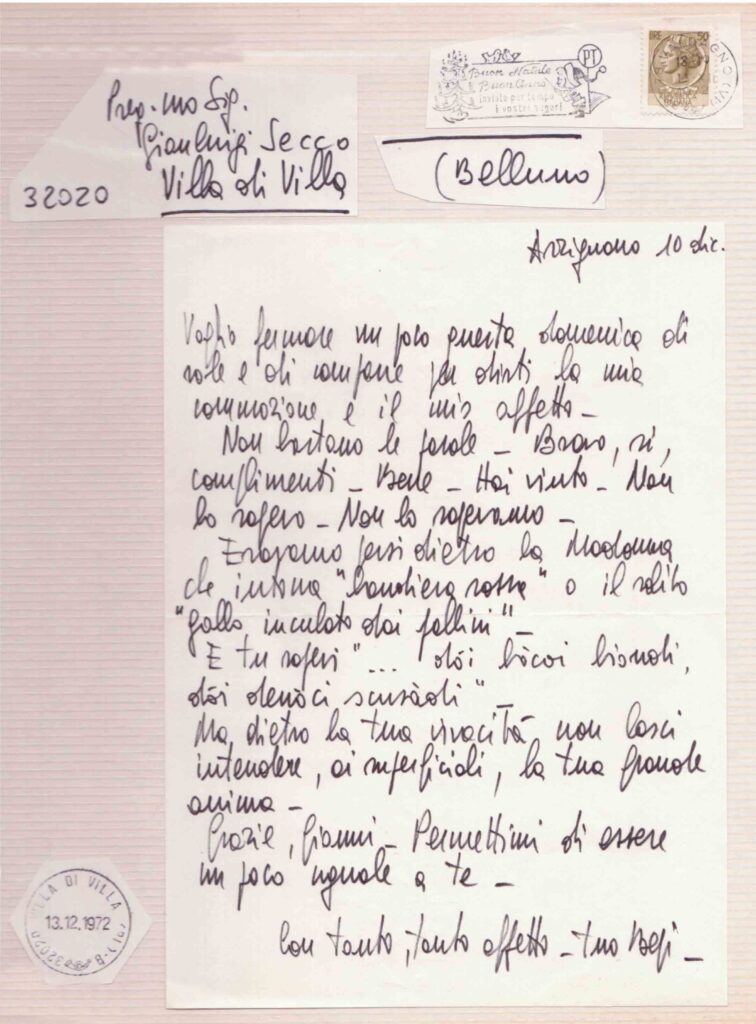 Preg.mo Sig.
Gianluigi Secco
32020 Villa di Villa
(Belluno)
Buon Natale
Buon Anno
invita per tempo
i vostri auguri
PT
LIRE 50
Arzignano 10 dic.
Voglio fermare un poco questa domenica di
sole e di campane per dirti la mia
commozione e il mio affetto_
Non bastano le parole _ Bravo, sì,
complimenti _ Bene _ Hai vinto _ Non
lo sapevo _ Non lo sapevamo _
Eravamo persi dietro la Madonna
che intona "bandiera rossa" o il solito
"gallo inculato dai pollini" _
E tu sapevi "... dói bòcoi biondi,
dói denòci scusàdi" _
Ma dietro la tua vivacità non lasci
intendere, ai superficiali, la tua grande
anima _
Grazie, Gianni _ Permettimi di essere
un poco uguale a te _
Con tanto, tanto affetto _ tuo Bepi _
VILLA DI VILLA
13.12.1972
32020